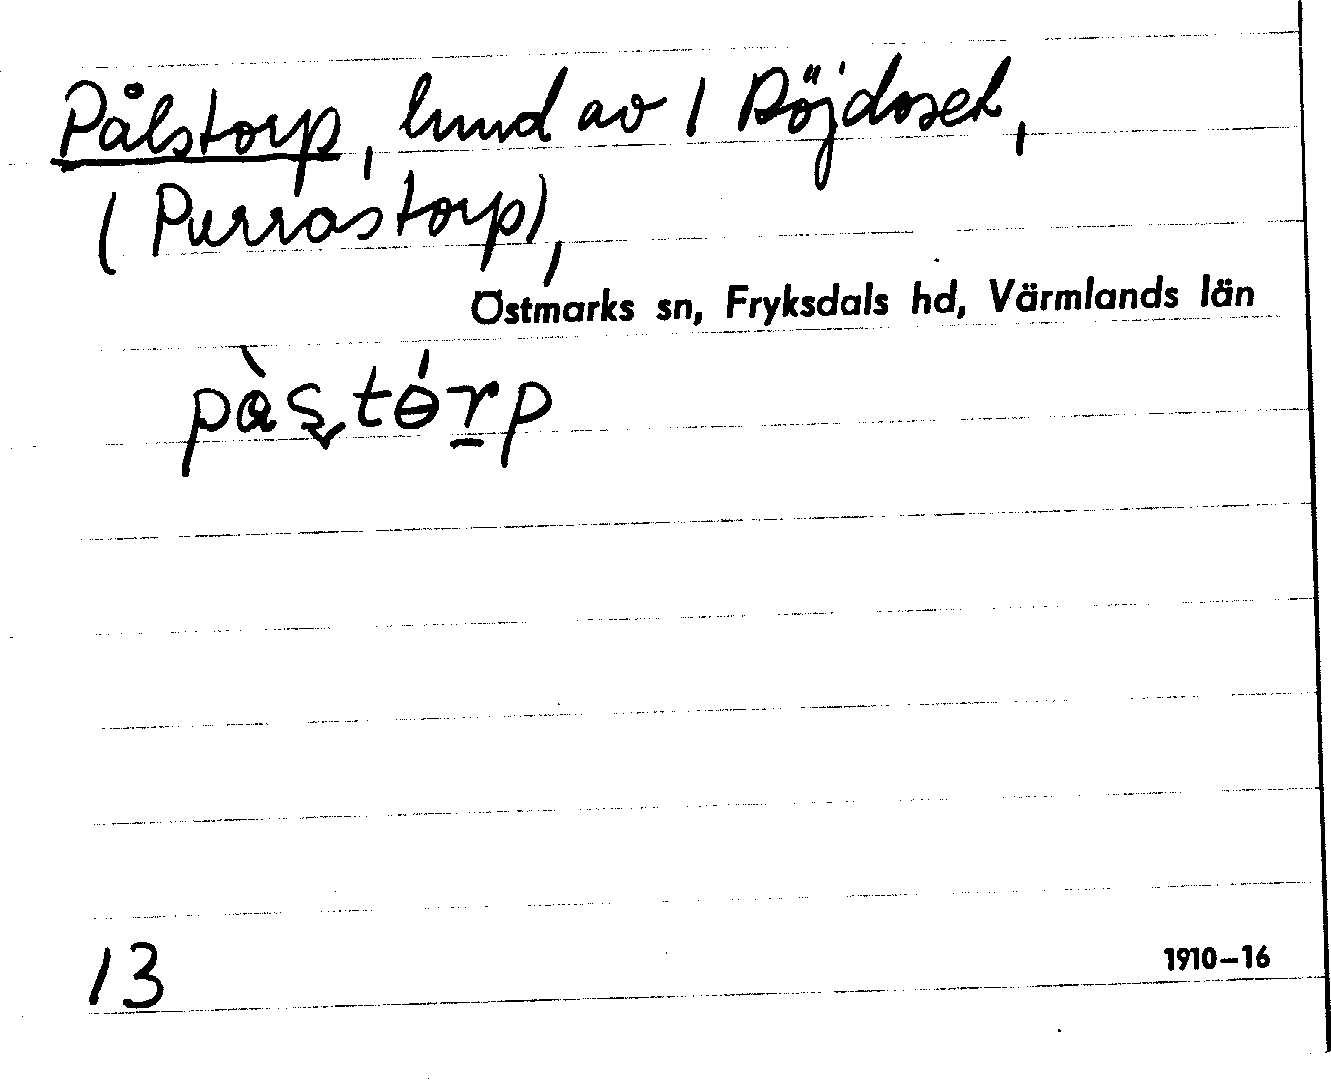 Pålstorp, lund av 1 Röjdosel,
(Purrastorp),
Östmarks sn, Fryksdals hd, Värmlands län
pàs̬tórp
13
1910–16